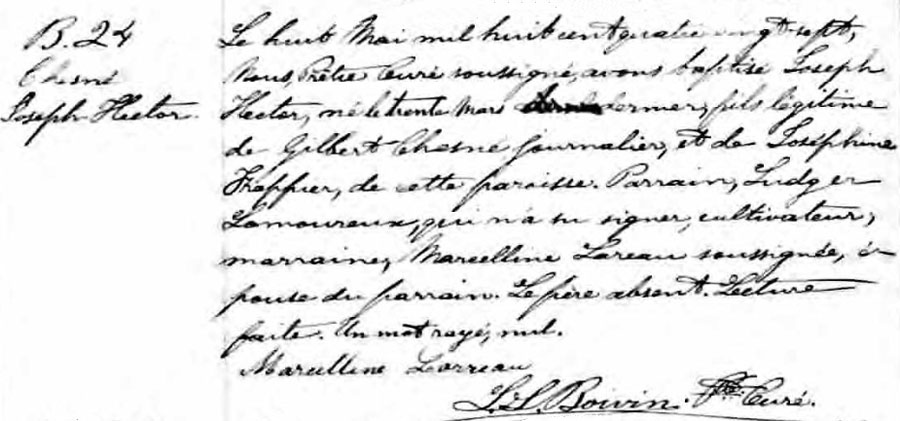 B. 24
Chesné
Joseph Hector.
Le huit Mai mil huit cent quatre vingt-sept,
Nous, Prêtre Curé soussigné, avons baptisé Joseph
Hector, né le trente Mars dernier, fils légitime
de Gilbert Chesné journalier, et de Joséphine
Frappier, de cette paroisse. Parrain, Ludger
Lamoureux, qui n'a su signer, cultivateur,
marraine, Marcelline Lareau soussignée, é-
pouse du parrain. Le père absent. Lecture
faite. Un mot rayé, nul.
Marcelline Larreau
L. S. Boivin. Ptre Curé.